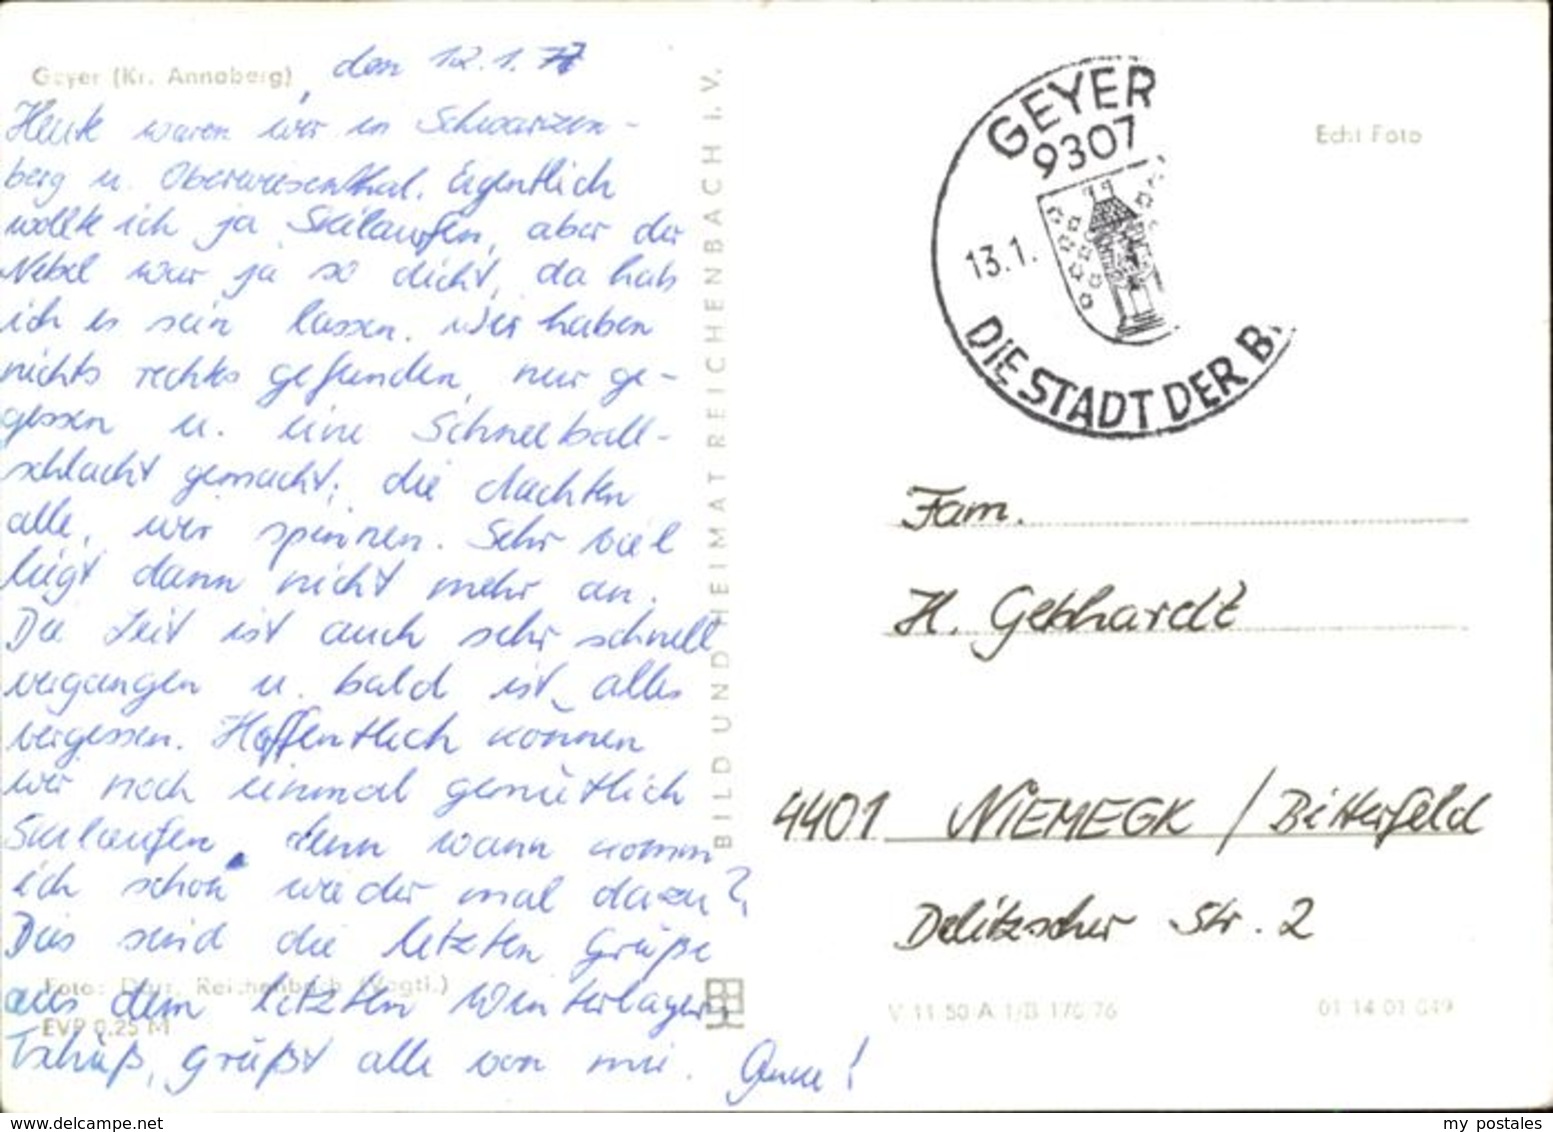 Geyer (Kr. Annaberg)
, den 12.1.77
Heute waren wir in Schwarzen-
berg u. Oberwiesenthal. Eigentlich
wollte ich ja Skilaufen, aber der
Nebel war ja so dicht, da hab
ich es sein lassen. Wir haben
nichts rechtes gefunden, nur ge-
gessen u. eine Schneeball-
schlacht gemacht; die dachten
alle, wir spinnen. Sehr viel
liegt dann nicht mehr an.
Die Zeit ist auch sehr schnell
vergangen u. bald ist alles
vergessen. Hoffentlich können
wir noch einmal gemütlich
Skilaufen, denn wann komm
ich schon wieder mal dazu?
Das sind die letzten Grüße
aus dem letzten Winterlager.
Tschüß, grüßt alle von mir.
Foto: Darr, Reichenbach (Vogtl.)
EVP 0.25 M
BILD UND HEIMAT REICHENBACH I. V.
GEYER
9307
13.1.
DIE STADT DER B
Echt Foto
Fam.
H. Gebhardt
4401 NIEMEGK / Bitterfeld
Delitzscher Str. 2
V 11 50 A 1/B 170/76
01 14 01 049
my postales